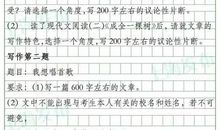 受?请选择一个角度,写200字左右的议论性片断。
(2)、读了现代文阅读(二)<成全一棵树>后、请就文章的
写作特色,选择一个角度,写200字左右的议论性片断。
写作第二题
题目:我想唱首歌
要求:(1)写一篇600字左右的文章。
(2)文中不能出现与考生本人有关的校名和姓名,若不可
避免,